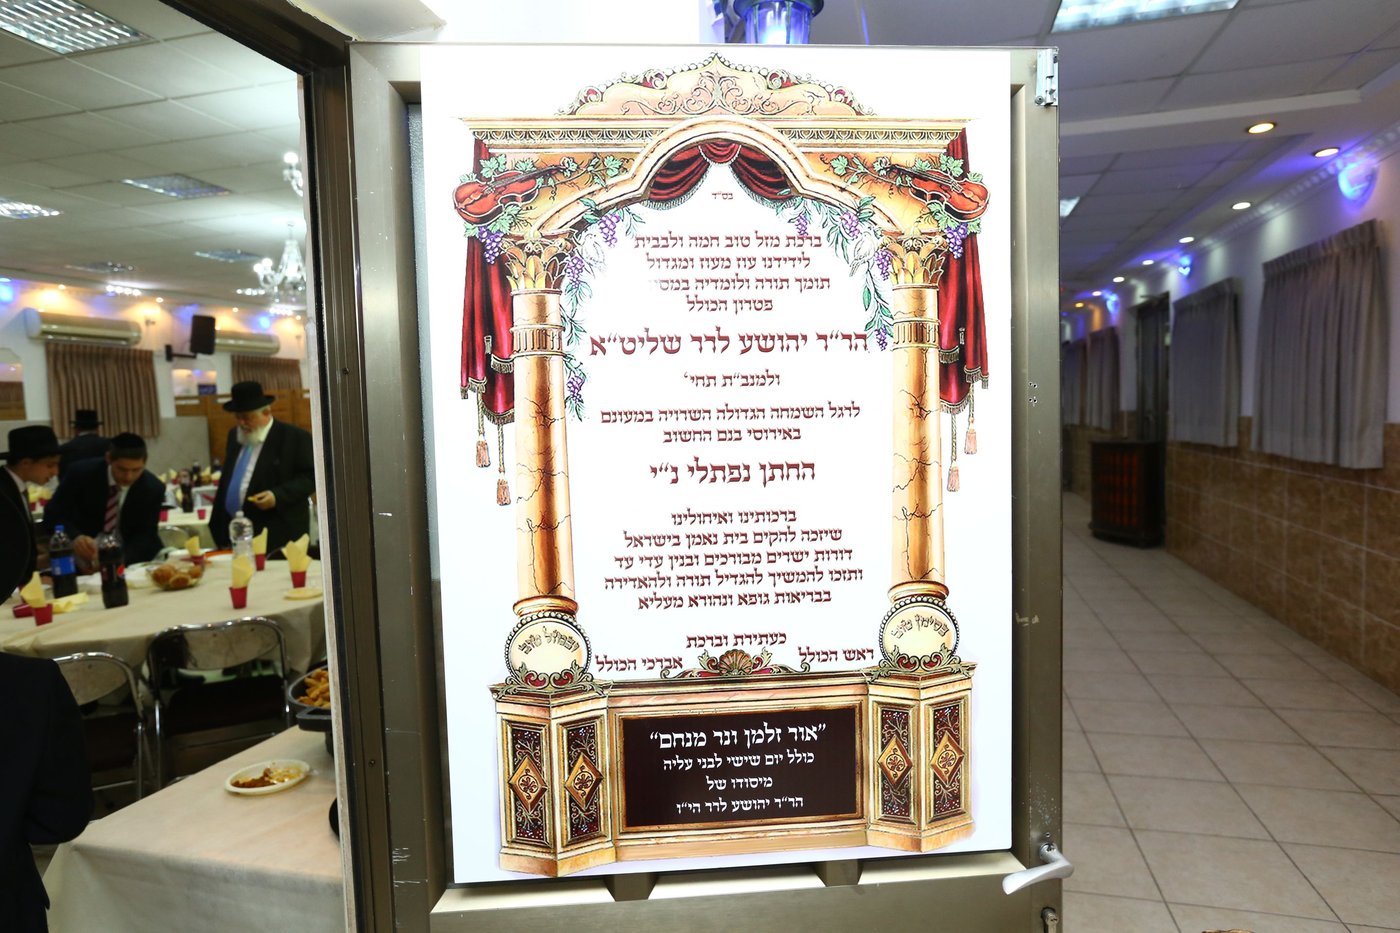 בס״ד
ברכת מזל טוב חמה ולבבית
לידידנו עוז מעוז ומגדול
תומך תורה ולומדיה
פטרון הכולל
הר״ר יהושע לדר שליט״א
ולמנב״ת תחי׳
לרגל השמחה הגדולה השרויה במעונם
באירוסי בנם החשוב
החתן נפתלי נ״י
ברכותינו ואיחולינו
שיזכה להקים בית נאמן בישראל
דורות ישרים מבורכים ובנין עדי עד
ותזכו להמשיך להגדיל תורה ולהאדירה
בבריאות גופא ונהורא מעליא
כעתירת וברכת
ראש הכולל אברכי הכולל
בסימן טוב
ובמזל טוב
״אור זלמן ונר מנחם״
כולל יום שישי לבני עליה
מיסודו של
הר״ר יהושע לדר הי״ו